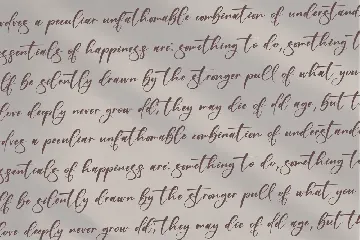 ndness a peculiar unfathomable combination of understand
essentials of happiness are: something to do, something t
lf be silently drawn by the stronger pull of what you
love deeply never grow old; they may die of old age, but t
ndness a peculiar unfathomable combination of understand
essentials of happiness are: something to do, something t
lf be silently drawn by the stronger pull of what you
love deeply never grow old; they may die of old age, but t